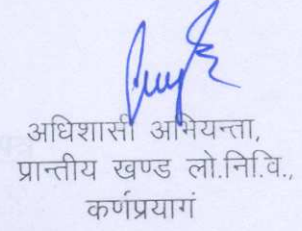 अधिशासी अभियन्ता,
प्रान्तीय खण्ड लो.नि.वि.,
कर्णप्रयाग